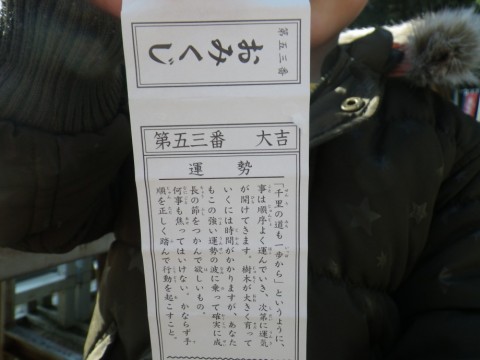 第五三番
おみくじ
第五三番 大吉
運勢
「千里の道も一歩から」というように、
事は順序よく運んでいき、次第に運気
が開けてきます。樹木が大きく育って
いくには時間がかかりますが、あなた
もこの強い運勢の波に乗って確実に成
長の節をつかんで欲しいもの。
何事も焦ってはいけない。かならず手
順を正しく踏んで行動を起こすこと。